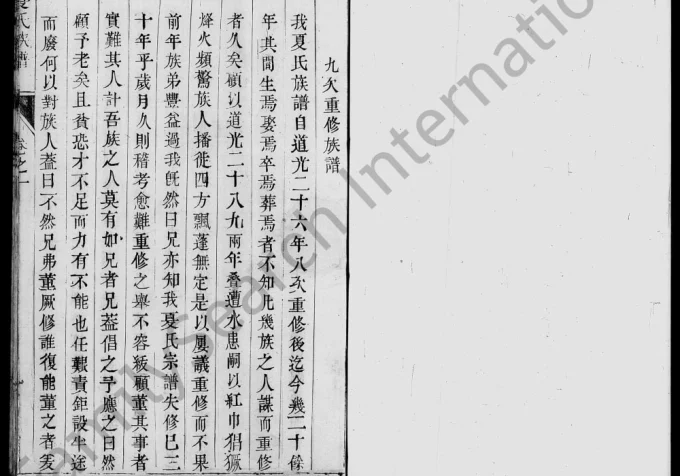 九次重修族譜
我夏氏族譜自道光二十六年八次重修後迄今幾二十餘
年其間生焉娶焉卒焉葬焉者不知凡幾族之人謀而重修
者久矣顧以道光二十八九兩年叠遭水患嗣以紅巾猖獗
烽火頻驚族人播徙四方飄蓬無定是以屢議重修而不果
前年族弟豐益過我旣然曰兄亦知我夏氏宗譜失修已三
十年乎歲月久則稽考愈難重修之舉不容緩顧董其事者
實難其人計吾族之人莫有如兄者兄葢倡之予應之曰然
顧予老矣且貧恐才不足而力有不能也任艱責鉅設半途
而廢何以對族人葢曰不然兄弗董厥修誰復能董之者爰
夏氏族譜
卷之一
FamilySearch International